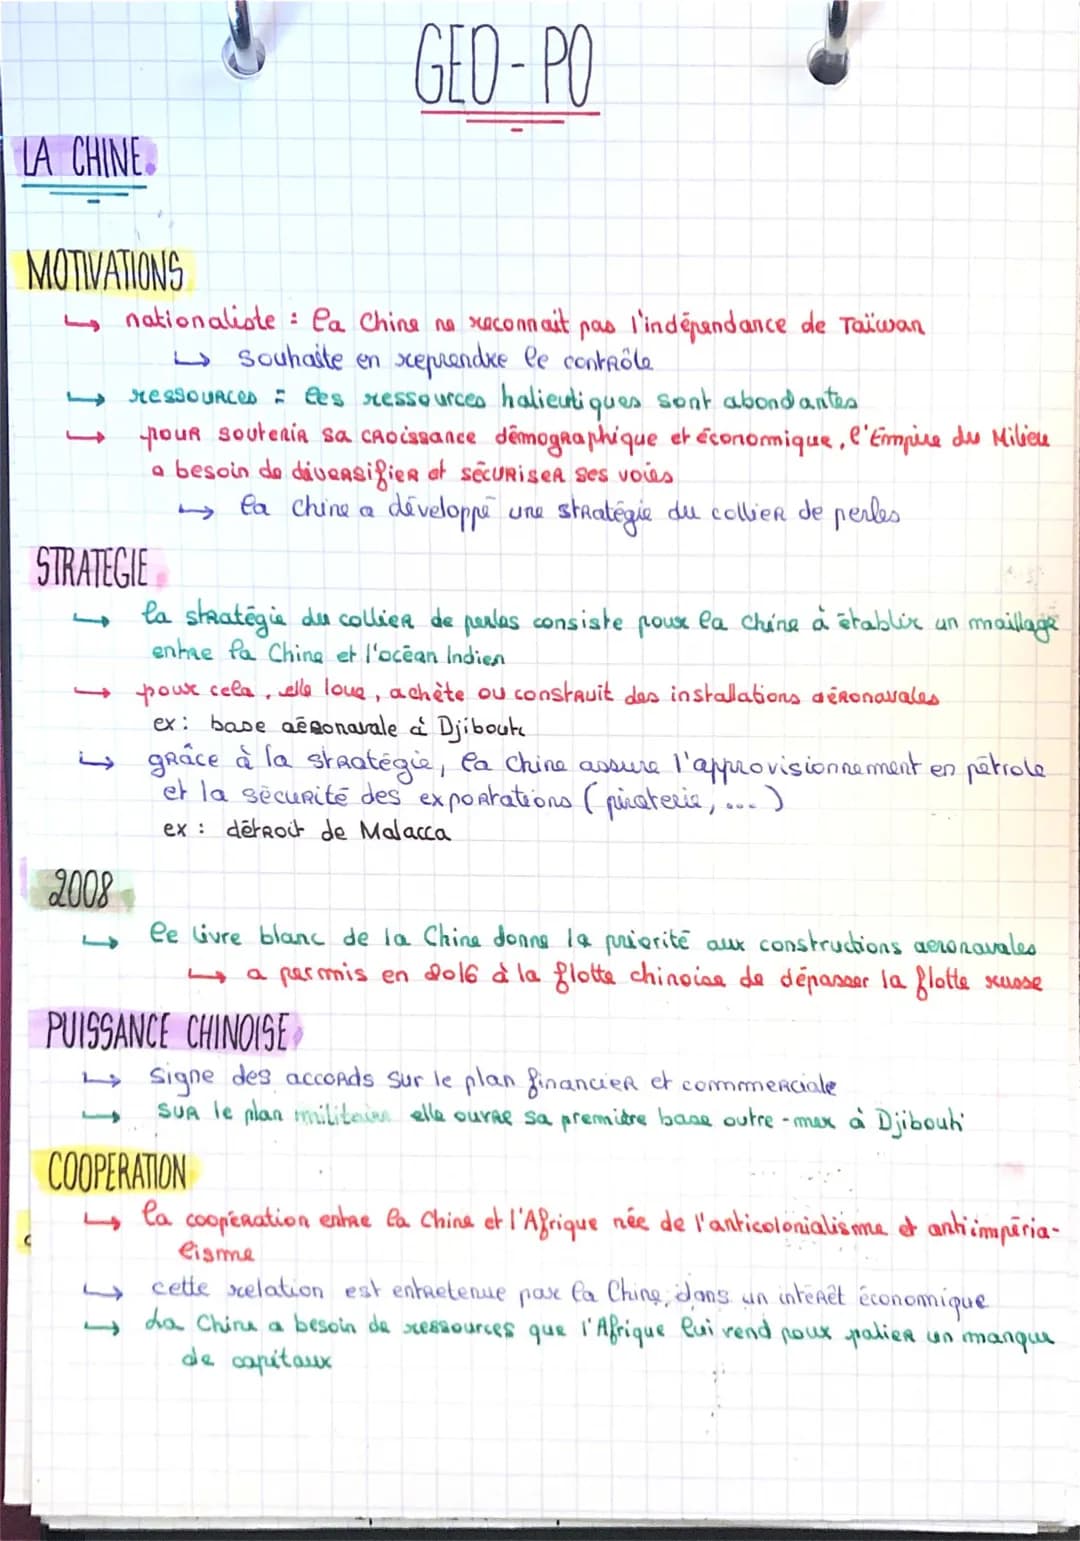 GEO-PO
LA CHINE
MOTIVATIONS
↳ nationaliste : la Chine ne reconnait pas l'indépendance de Taïwan
↳ souhaite en reprendre le contrôle
↳ ressources : les ressources halieutiques sont abondantes
↳ pour soutenir sa croissance démographique et économique, l'Empire du Milieu
a besoin de diversifier et sécuriser ses voies
↳ la Chine a développé une stratégie du collier de perles
STRATEGIE
↳ la stratégie du collier de perles consiste pour la Chine à établir un maillage
entre la Chine et l'océan Indien
↳ pour cela, elle loue, achète ou construit des installations aéronavales
ex : base aéronavale à Djibouti
↳ grâce à la stratégie, la Chine assure l'approvisionnement en pétrole
et la sécurité des exportations (piraterie, ...)
ex : détroit de Malacca
2008
↳ le livre blanc de la Chine donne la priorité aux constructions aeronavales
↳ a permis en 2016 à la flotte chinoise de dépasser la flotte russe
PUISSANCE CHINOISE
↳ signe des accords sur le plan financier et commerciale
↳ sur le plan militaire elle ouvre sa première base outre-mer à Djibouti
COOPERATION
↳ la coopération entre la Chine et l'Afrique née de l'anticolonialisme et antiimpéria-
lisme
↳ cette relation est entretenue par la Chine, dans un intérêt économique
↳ La Chine a besoin de ressources que l'Afrique lui vend pour palier un manque
de capitaux